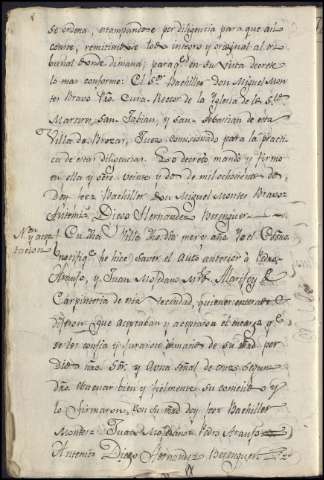 se ordena, estampandose por diligencia para que asi
conste, remitiendose todo integro y original al Tri
bunal donde dimana; para qe. en su vista decrete
lo mas conforme: El Sor. Bachiller don Miguel Mon
tes Bravo Tio Cura Rector de la Iglesia de los Stos.
Martires San Fabian, y San Sebastian de esta
Villa de Brozas, Juez comisionado para la practi
ca de estas diligencias. Lo decretó mando y firmó
en ella y
doy fee: Bachiller Don Miguel Montes Bravo=
Antemi: Diego Hernandez Berenguer
En dha Villa dho dia mes y año Yo el Esño
notifiqe. he hice saver el Auto anterior à Pedro
Araujo, y Juan Moldano Mros. Alarifes y
Carpinteria de esta vecindad, quienes enterados
dijeron que aceptaban y aceptaron el encargo qe.
se les confia y juraron en manos de su Mrd. por
Dios nro Sor. y a una señal de cruz segun
dro evacuar bien y fielmente su cometido y
lo firmaron, con su Mrd doy fee: Bachiller
Montes= Juan Moldano= Pedro Araujo=
Antemi= Diego Hernandez Berenguer=